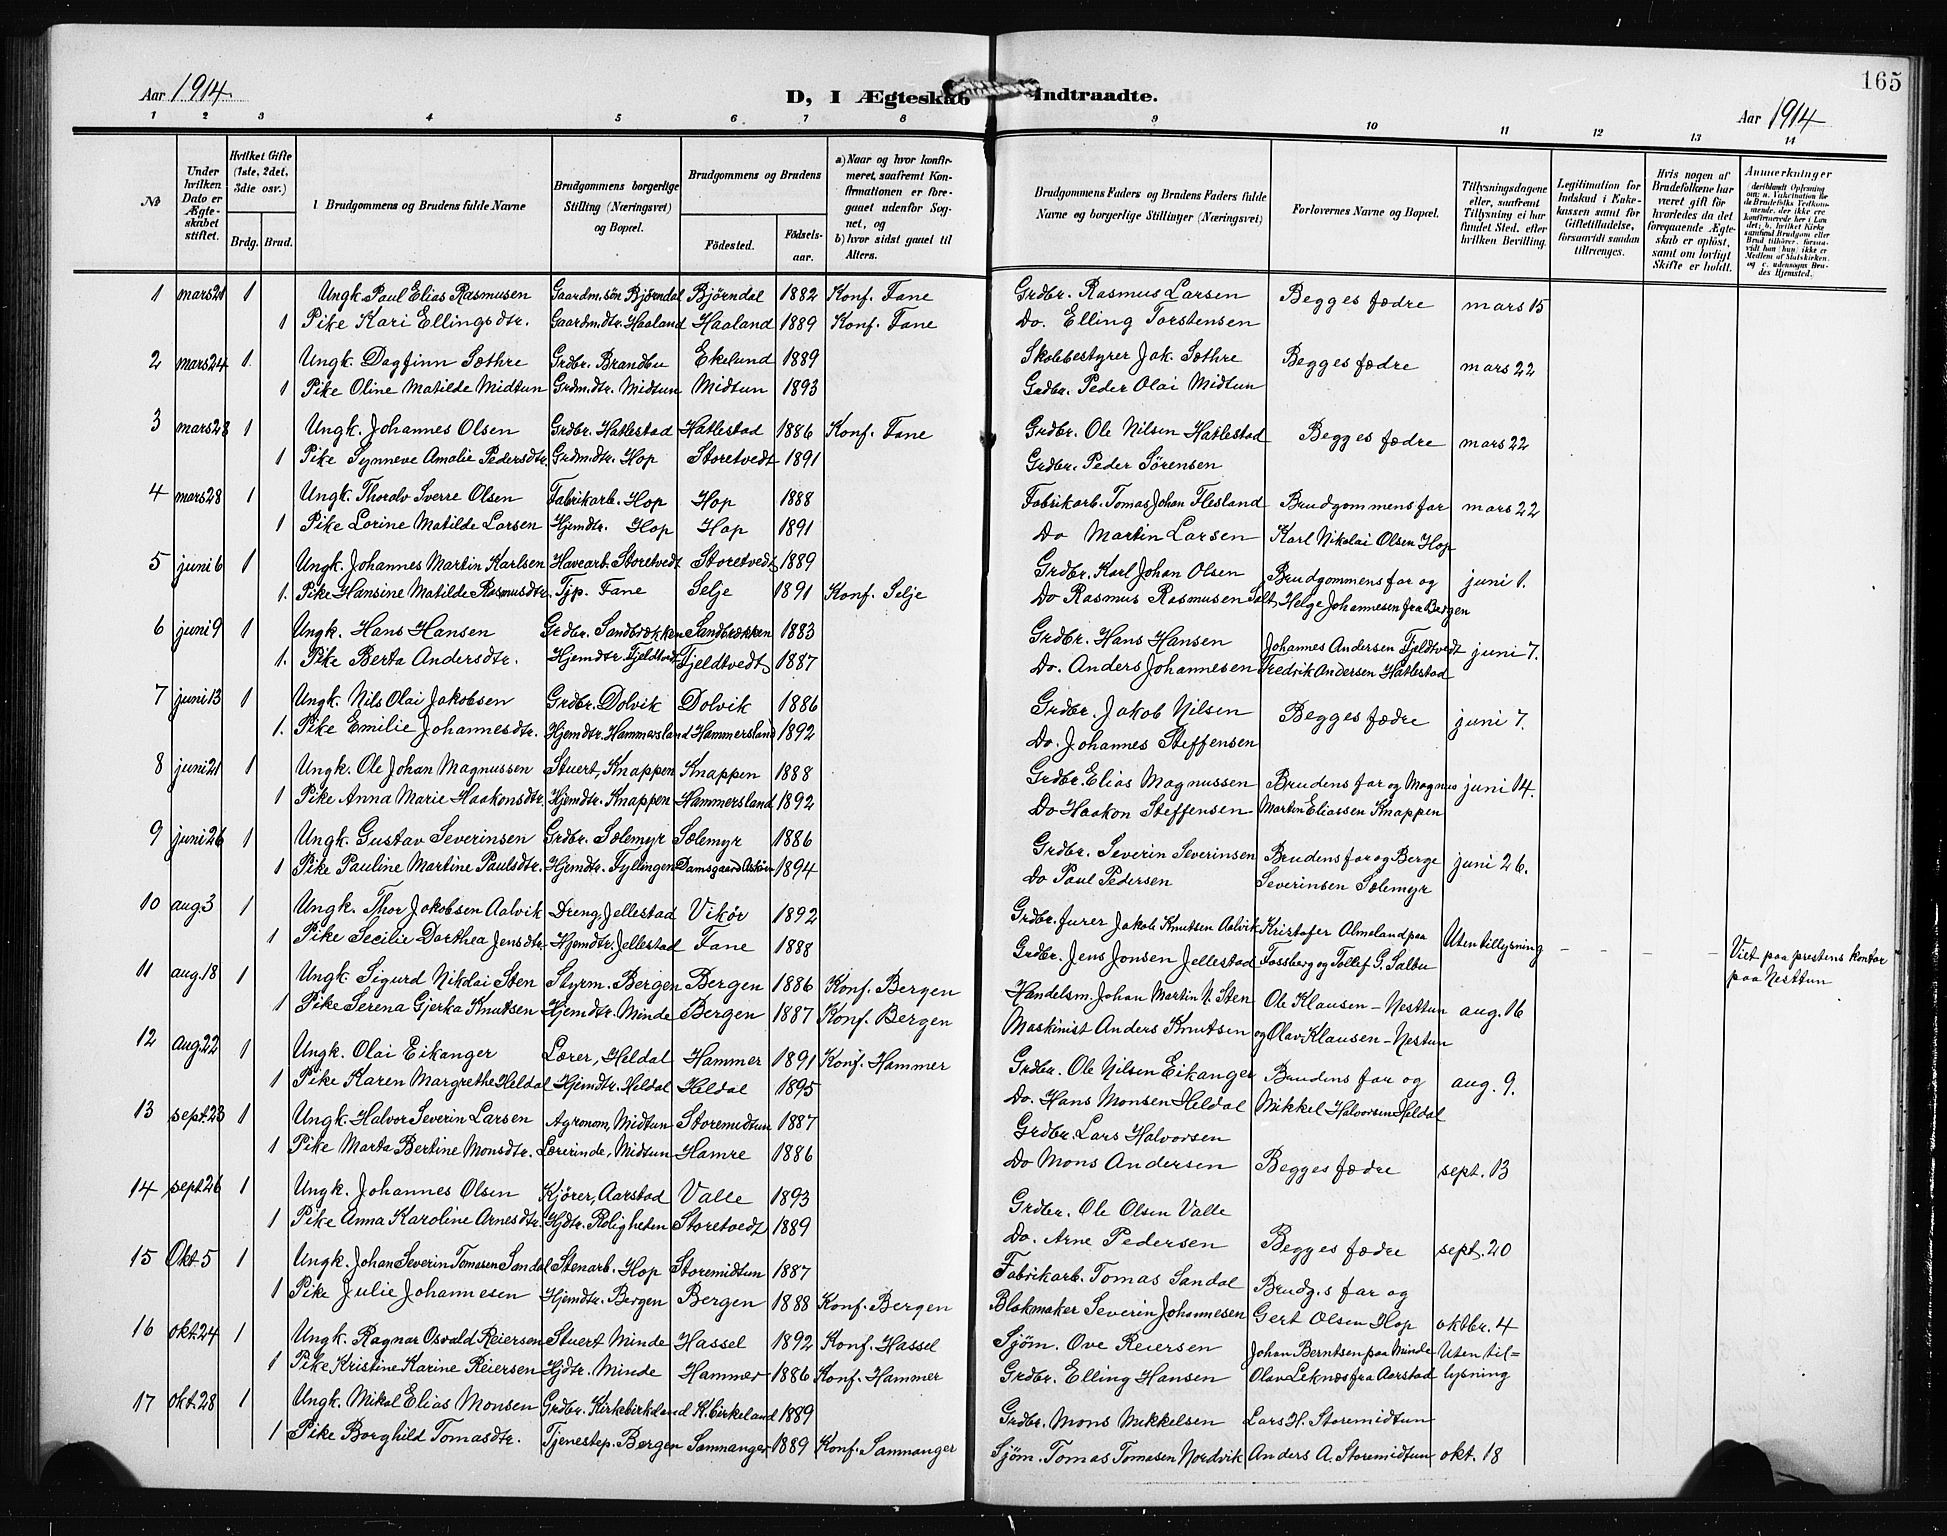 165
Aar 1914
D, I Ægteskab Indtraadte.
Aar 1914
1 2 3 4 5 6 7 8 9 10 11 12 13 14
No
Under hvilken Dato er Ægteskabet stiftet.
Hvilket Gifte (1ste, 2det, 3die osv.)
Brdg. Brud.
Brudgommens og Brudens fulde Navne
Brudgommens borgerlige Stilling (Næringsvei) og Bopæl.
Brudgommens og Brudens
Fødested.
Fødselsaar.
a) Naar og hvor konfirmeret, saafremt Konfirmationen er foregaaet udenfor Sognet, og
b) hvor sidst gaaet til Alters.
Brudgommens Faders og Brudens Faders fulde Navne og borgerlige Stillinger (Næringsvei)
Forlovernes Navne og Bopæl.
Tillysningsdagene eller, saafremt Tillysning ei har fundet Sted, efter hvilken Bevilling.
Legitimation for Indskud i Enkekassen samt for Giftetilladelse, forsaavidt saadan tiltrænges.
Hvis nogen af Brudefolkene har været gift før hvorledes da det foregaaende Ægteskab er opløst, samt om lovligt Skifte er holdt.
Anmærkninger
1 mars 21 1 Ungk. Paul Elias Rasmusen Gaardm.søn Bjørndal Bjørndal 1882 Konf. Fane Grdbr. Rasmus Larsen Begges fædre mars 15
1 Pike Kari Ellingsdtr. Gaardmdtr. Haaland Haaland 1889 Konf. Fane Do. Elling Torstensen
2 mars 24 1 Ungk. Dagfinn Sæthre Grdbr. Brandbu Ekelund 1889 Skolebestyrer Jak. Sæthre Begges fædre mars 22
1 Pike Oline Matilde Midtun Grdmdtr. Midtun Midtun 1893 Grdbr. Peder Olai Midtun
3 mars 28 1 Ungk. Johannes Olsen Grdbr. Hatlestad Hatlestad 1886 Konf. Fane Grdbr. Ole Nilsen Hatlestad Begges fædre mars 22
1 Pike Synneve Amalie Pedersdtr. Grdmdtr. Hop Storetvedt 1891 Grdbr. Peder Sørensen
4 mars 28 1 Ungk. Thoralv Sverre Olsen Fabrikarb. Hop Hop 1888 Fabrikarb. Tomas Johan Flesland Brudgommens far mars 22
1 Pike Lorine Matilde Larsen Hjemdtr. Hop Hop 1891 Do Martin Larsen Karl Nikolai Olsen Hop
5 juni 6 1 Ungk. Johannes Martin Karlsen Havearb. Storetvedt Storetvedt 1889 Grdbr. Karl Johan Olsen Brudgommens far og juni 1.
1. Pike Hansine Matilde Rasmusdtr. Tjp. Fane Selje 1891 Konf. Selje Do Rasmus Rasmusen Salt Helge Johannesen fra Bergen
6 juni 9 1 Ungk. Hans Hansen Grdbr. Sandbrækken Sandbrækken 1883 Grdbr. Hans Hansen Johannes Andersen Fjeldtvedt juni 7.
1. Pike Berta Andersdtr. Hjemdtr. Fjeldtvedt Fjeldtvedt 1887 Do. Anders Johannesen Fredrik Andersen Hatlestad
7 juni 13 1 Ungk. Nils Olai Jakobsen Grdbr. Dolvik Dolvik 1886 Grdbr. Jakob Nilsen Begges fædre juni 7.
1. Pike Emilie Johannesdtr. Hjemdtr. Hammersland Hammersland 1892 Do. Johannes Steffensen
8 juni 21 1 Ungk. Ole Johan Magnussen Stuert, Knappen Knappen 1888 Grdbr. Elias Magnussen Brudens far og Magnus juni 14.
1 Pike Anna Marie Haakonsdtr. Hjemdtr. Knappen Hammersland 1892 Do Haakon Steffensen Martin Eliassen Knappen
9 juni 26 1 Ungk. Gustav Severinsen Grdbr. Sælemyr Sælemyr 1886 Grdbr. Severin Severinsen Brudens far og Berge juni 26.
1 Pike Pauline Martine Paulsdtr. Hjemdtr. Fyllingen Damsgaard Askøen 1894 Do Paul Pedersen Severinsen Sælemyr
10 aug. 3 1 Ungk. Thor Jakobsen Aalvik Dreng, Jellestad Vikør 1892 Grdbr. furer Jakob Knutsen Aalvik Kristofer Olmeland paa Uten tillysning - - - Viet paa prestens kontor
1 Pike Secilie Dorthea Jensdtr. Hjemdtr. Jellestad Fane 1888 Grdbr. Jens Jonsen Jellestad Fossberg og Tollef G. Salbu paa Nesttun
11 aug. 18 1 Ungk. Sigurd Nikolai Sten Styrm. Bergen Bergen 1886 Konf. Bergen Handelsm. Johan Martin N. Sten Ole Klausen - Nesttun aug. 16
1 Pike Serena Gjerka Knutsen Hjemdtr. Minde Bergen 1887 Konf. Bergen Maskinist Anders Knutsen og Olav Klausen - Nestun
12 aug. 22 1 Ungk. Olai Eikanger Lærer, Heldal Hammer 1891 Konf. Hammer Grdbr. Ole Nilsen Eikanger Brudens far og aug. 9.
1 Pike Karen Margrethe Heldal Hjemdtr. Heldal Heldal 1895 Do. Hans Monsen Heldal Mikkel Halvorsen Heldal
13 sept. 23 1 Ungk. Halvor Severin Larsen Agronom, Midtun Storemidtun 1887 Grdbr. Lars Halvorsen
1 Pike Marta Bertine Monsdtr. Lærerinde, Midtun Hamre 1886 Do Mons Andersen Begges fædre sept. 13
14 sept 26 1 Ungk. Johannes Olsen Kjører, Aarstad Valle 1893 Grdbr. Ole Olsen Valle
1 Pike Anna Karoline Arnesdtr. Hjdtr. Roligheten Storetvedt 1889 Do. Arne Pedersen Begges fædre sept. 20
15 Okt. 5 1 Ungk. Johan Severin Tomasen Sandal Stenarb. Hop Storemidtun 1887 Fabrikarb. Tomas Sandal Brudg.s far og
1 Pike Julie Johannesen Hjemdtr. Bergen Bergen 1888 Konf. Bergen Blokmaker Severin Johannesen Gert Olsen Hop oktbr. 4
16 okt. 24 1 Ungk. Ragnar Osvald Reiersen Stuert Minde Hassel 1892 Konf. Hassel Sjøm. Ove Reiersen Johan Berntsen paa Minde Uten til=
1 Pike Kristine Karine Reiersen Hjdtr. Minde Hammer 1886 Konf. Hammer Grdbr. Elling Hansen Olav Leknæs fra Aarstad lysning
17 okt. 28 1 Ungk. Mikal Elias Monsen Grdbr. Kirkebirkeland K. birkeland 1889 Grdbr. Mons Mikkelsen Lars H. Storemidtun
1 Pike Borghild Tomasdtr. Tjenestep. Bergen Samnanger 1889 Konf. Samnanger Sjøm. Tomas Tomasen Nordvik Anders A. Storemidtun okt. 18